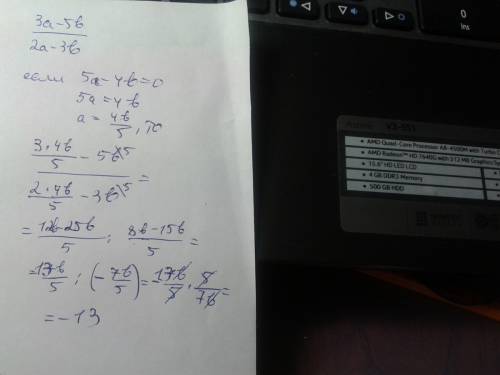 3a-5b
2a-3b
если 5a-4b=0
5a=4b
a=4b/5, то
3·4b/5 - 5b\5
2·4b/5 - 3b\5 =
= 12b-25b/5 : 8b-15b/5 =
= 13b/5 : (-7b/5) = -
= -13
0
Ins
V3-551
AMD Quad-Core Processor A8-4500M with Turbo
AMD Radeon™ HD 7640G with 512 MB Graphics
15.6" HD LED LCD
4 GB DDR3 Memory
500 GB HDD